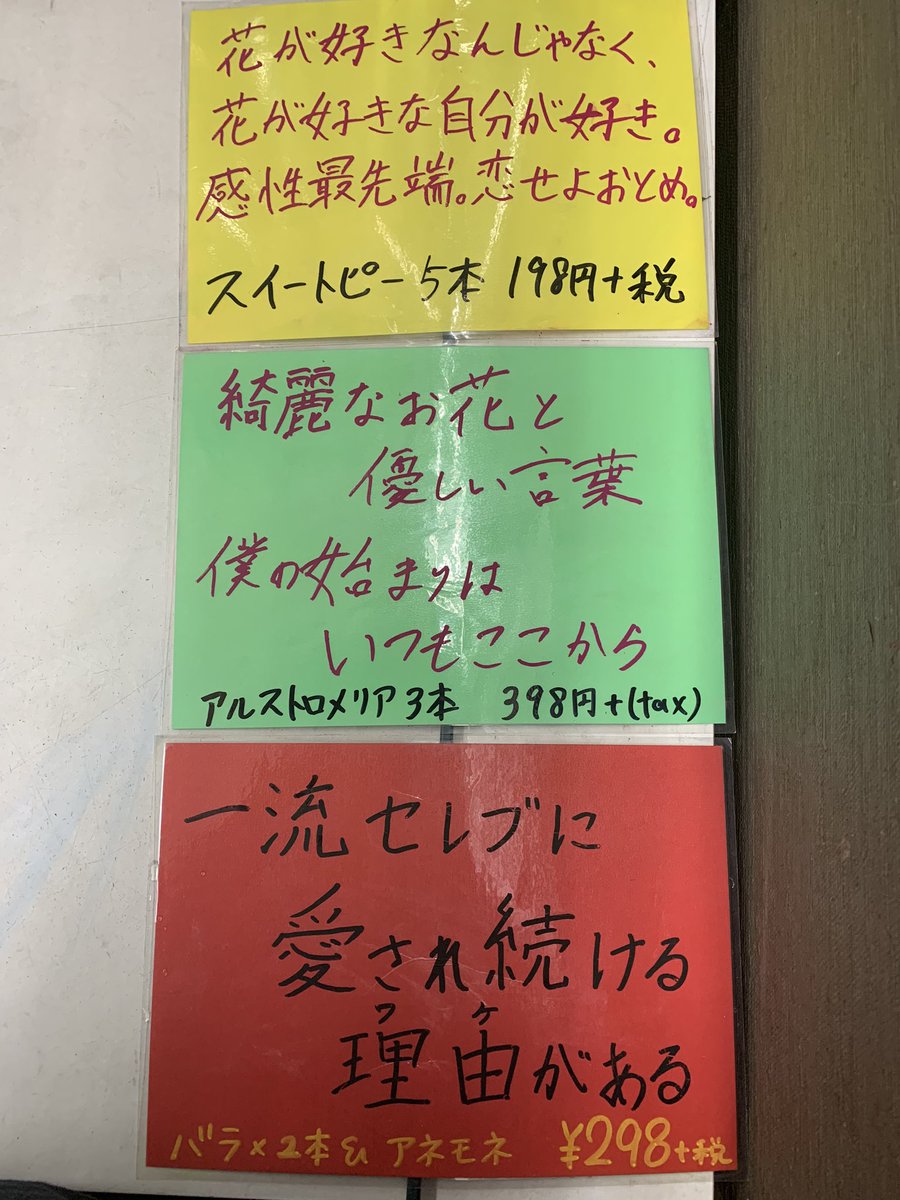 花が好きなんじゃなく、
花が好きな自分が好き。
感性最先端。恋せよおとめ。
スイートピー5本 198円+税
綺麗なお花と
優しい言葉
僕の始まりは
いつもここから
アルストロメリア3本 398円+(tax)
一流セレブに
愛され続ける
ワケ
理由がある
バラ×2本& アネモネ ¥298+税